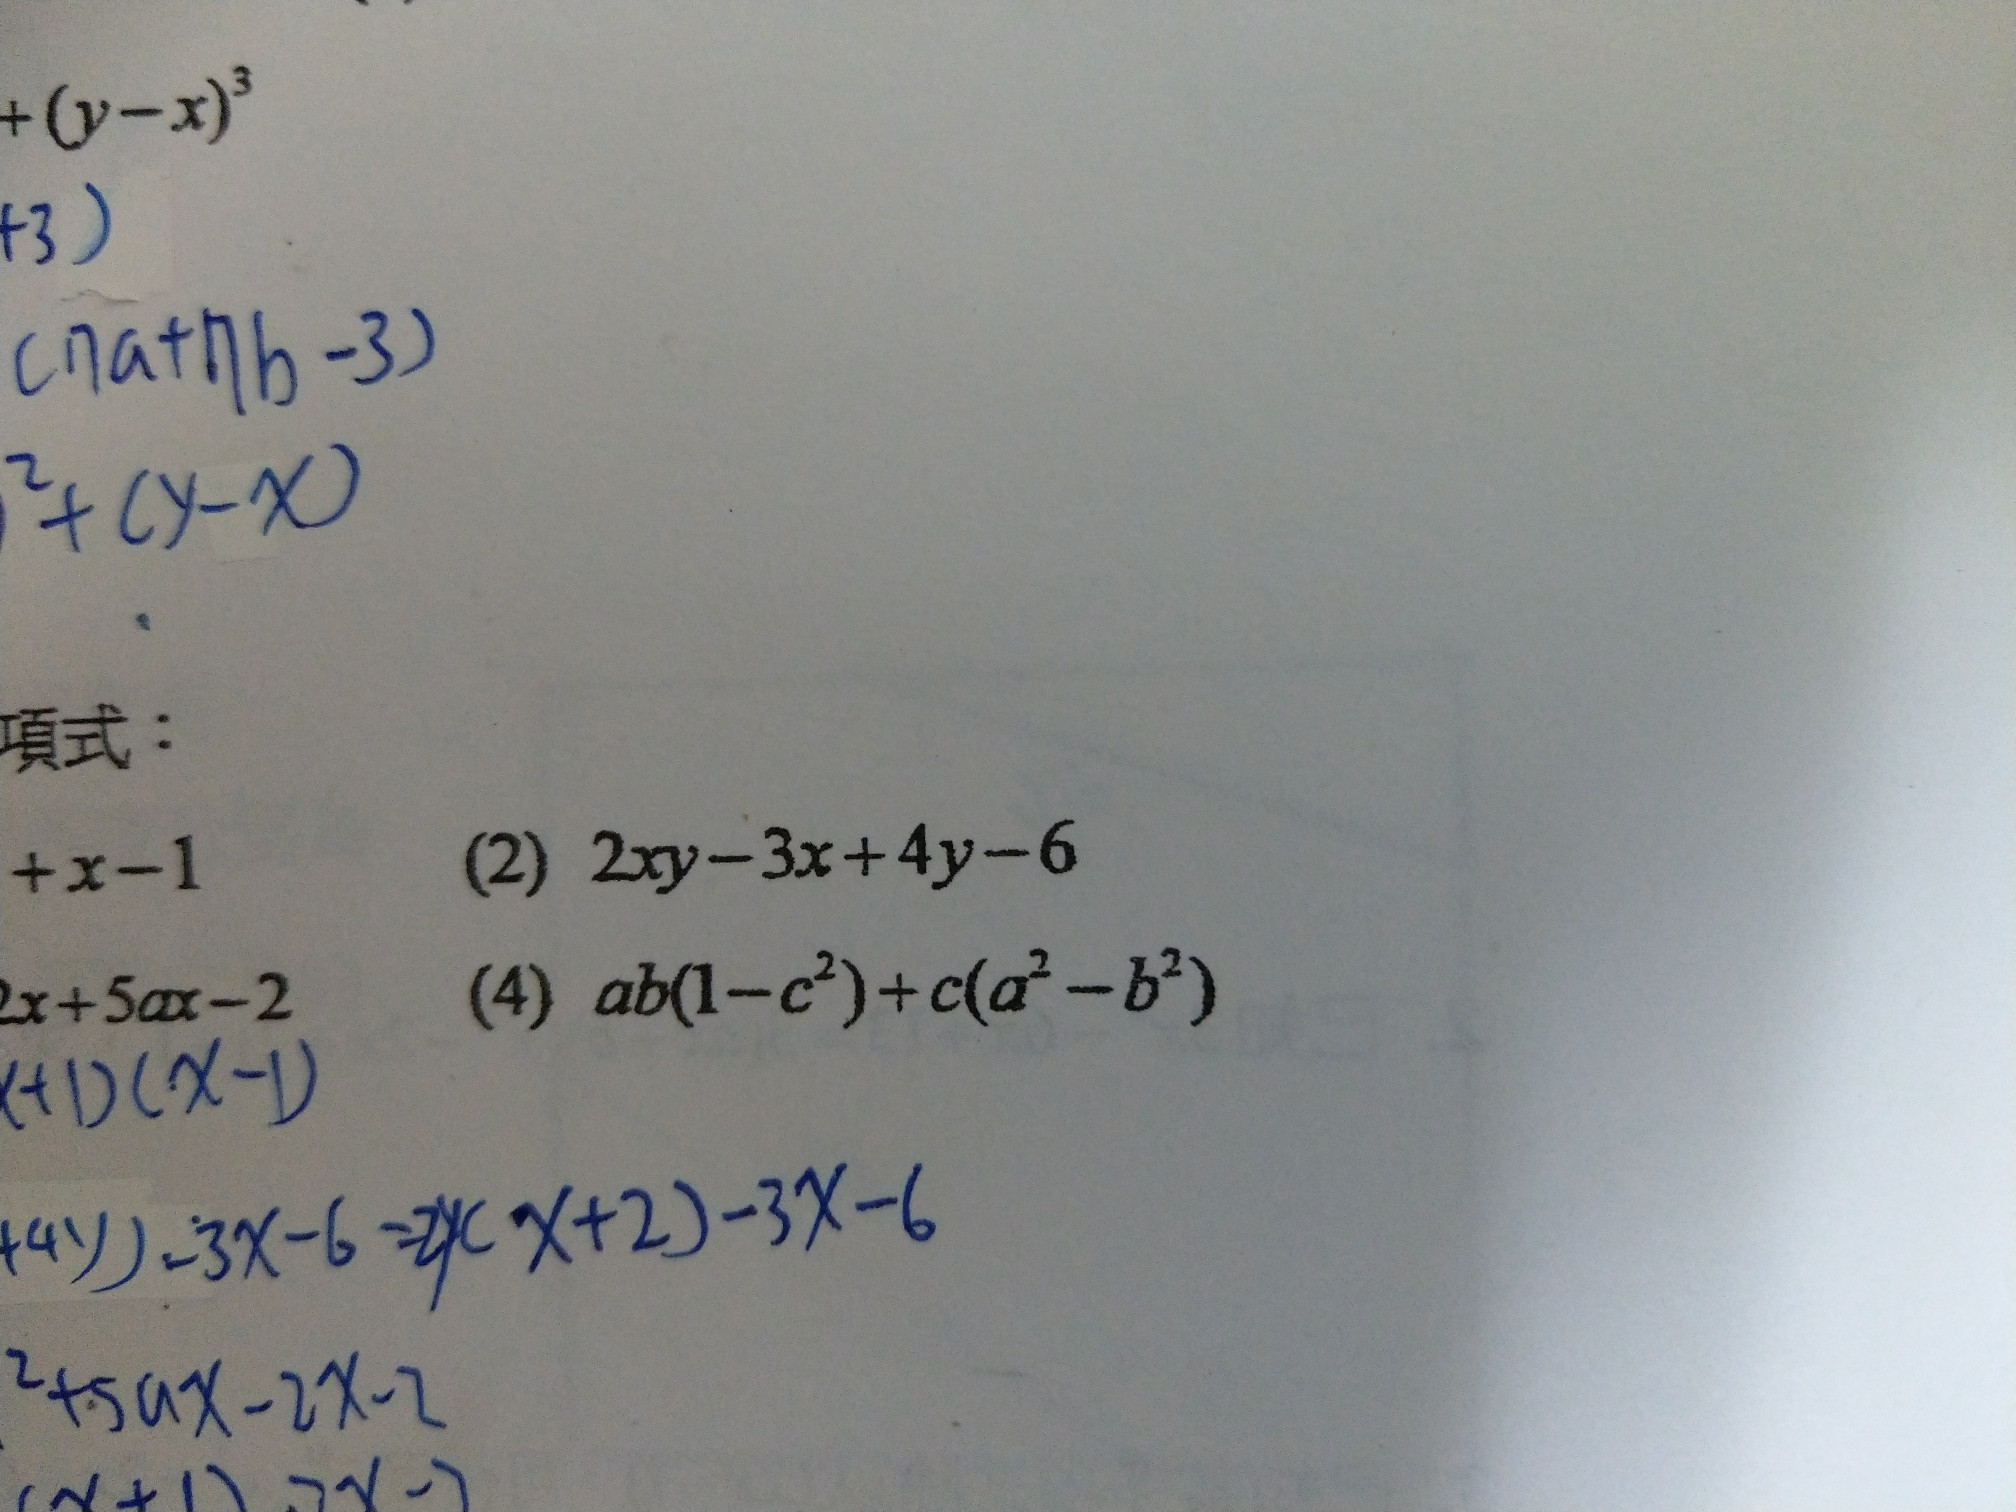 +(y−x)³
+3)
(7a+7b-3)
)²+(y-x)
項式：
+x−1 (2) 2xy−3x+4y−6
2x+5ax−2 (4) ab(1−c²)+c(a²−b²)
x+1)(x-1)
+4y)-3x-6=2y(x+2)-3x-6
²+5ax-2x-2
(x+1)-2x-2